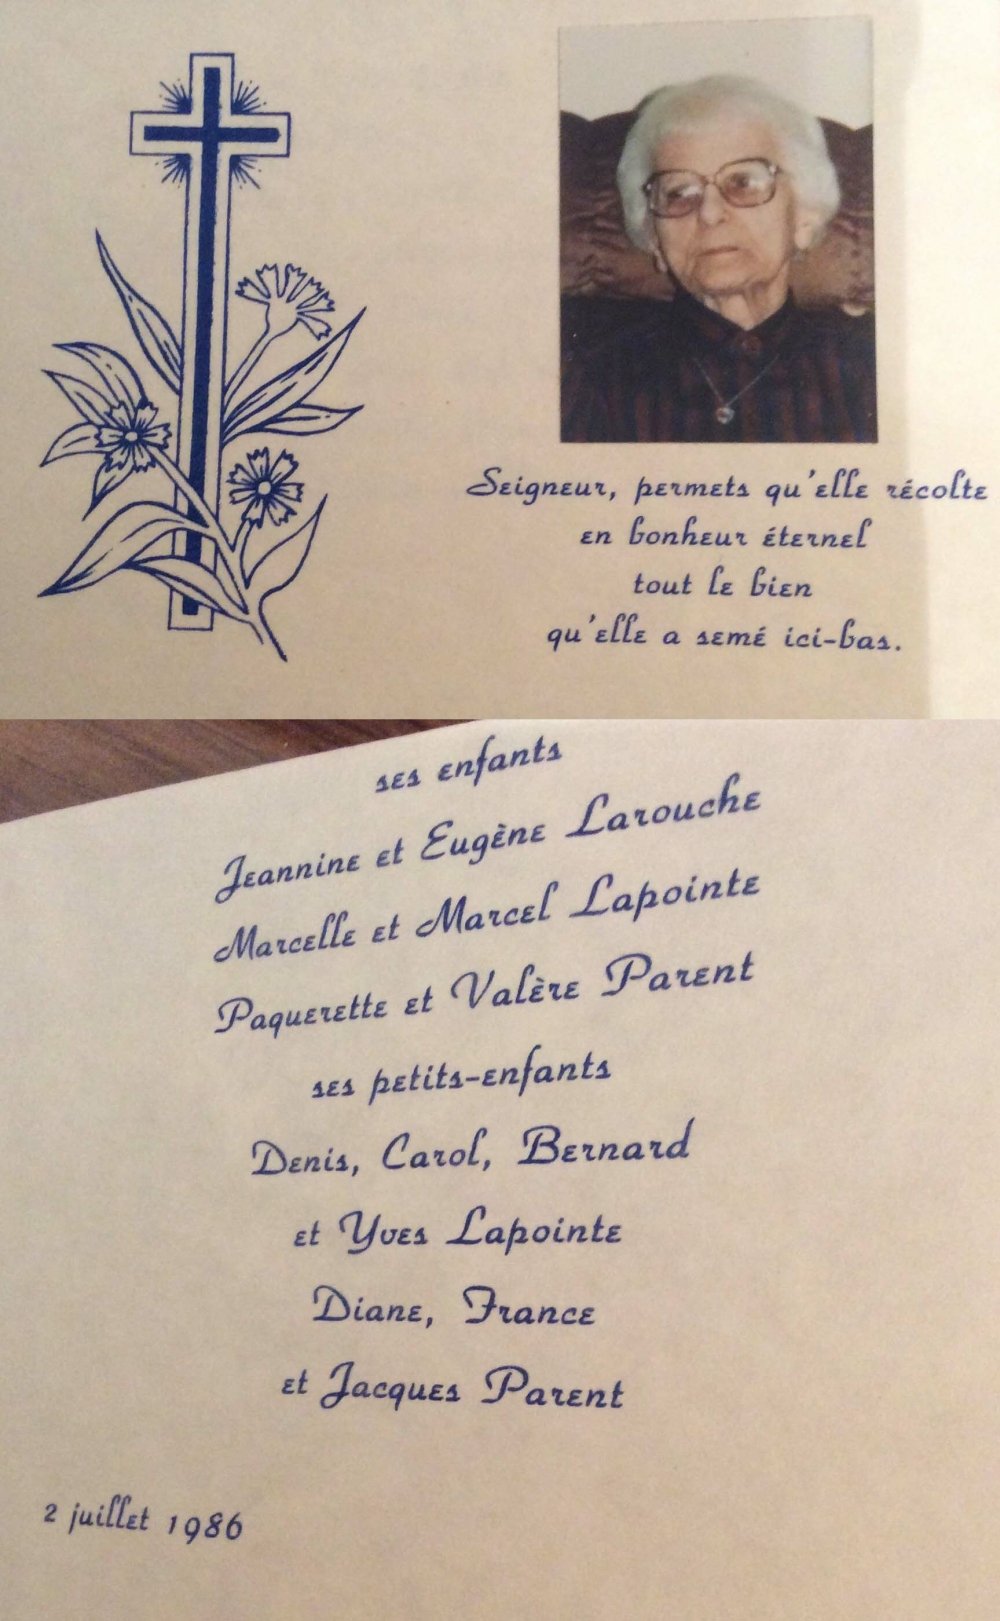 Seigneur, permets qu'elle récolte
en bonheur éternel
tout le bien
qu'elle a semé ici-bas.
ses enfants
Jeannine et Eugène Larouche
Marcelle et Marcel Lapointe
Paquerette et Valère Parent
ses petits-enfants
Denis, Carol, Bernard
et Yves Lapointe
Diane, France
et Jacques Parent
2 juillet 1986